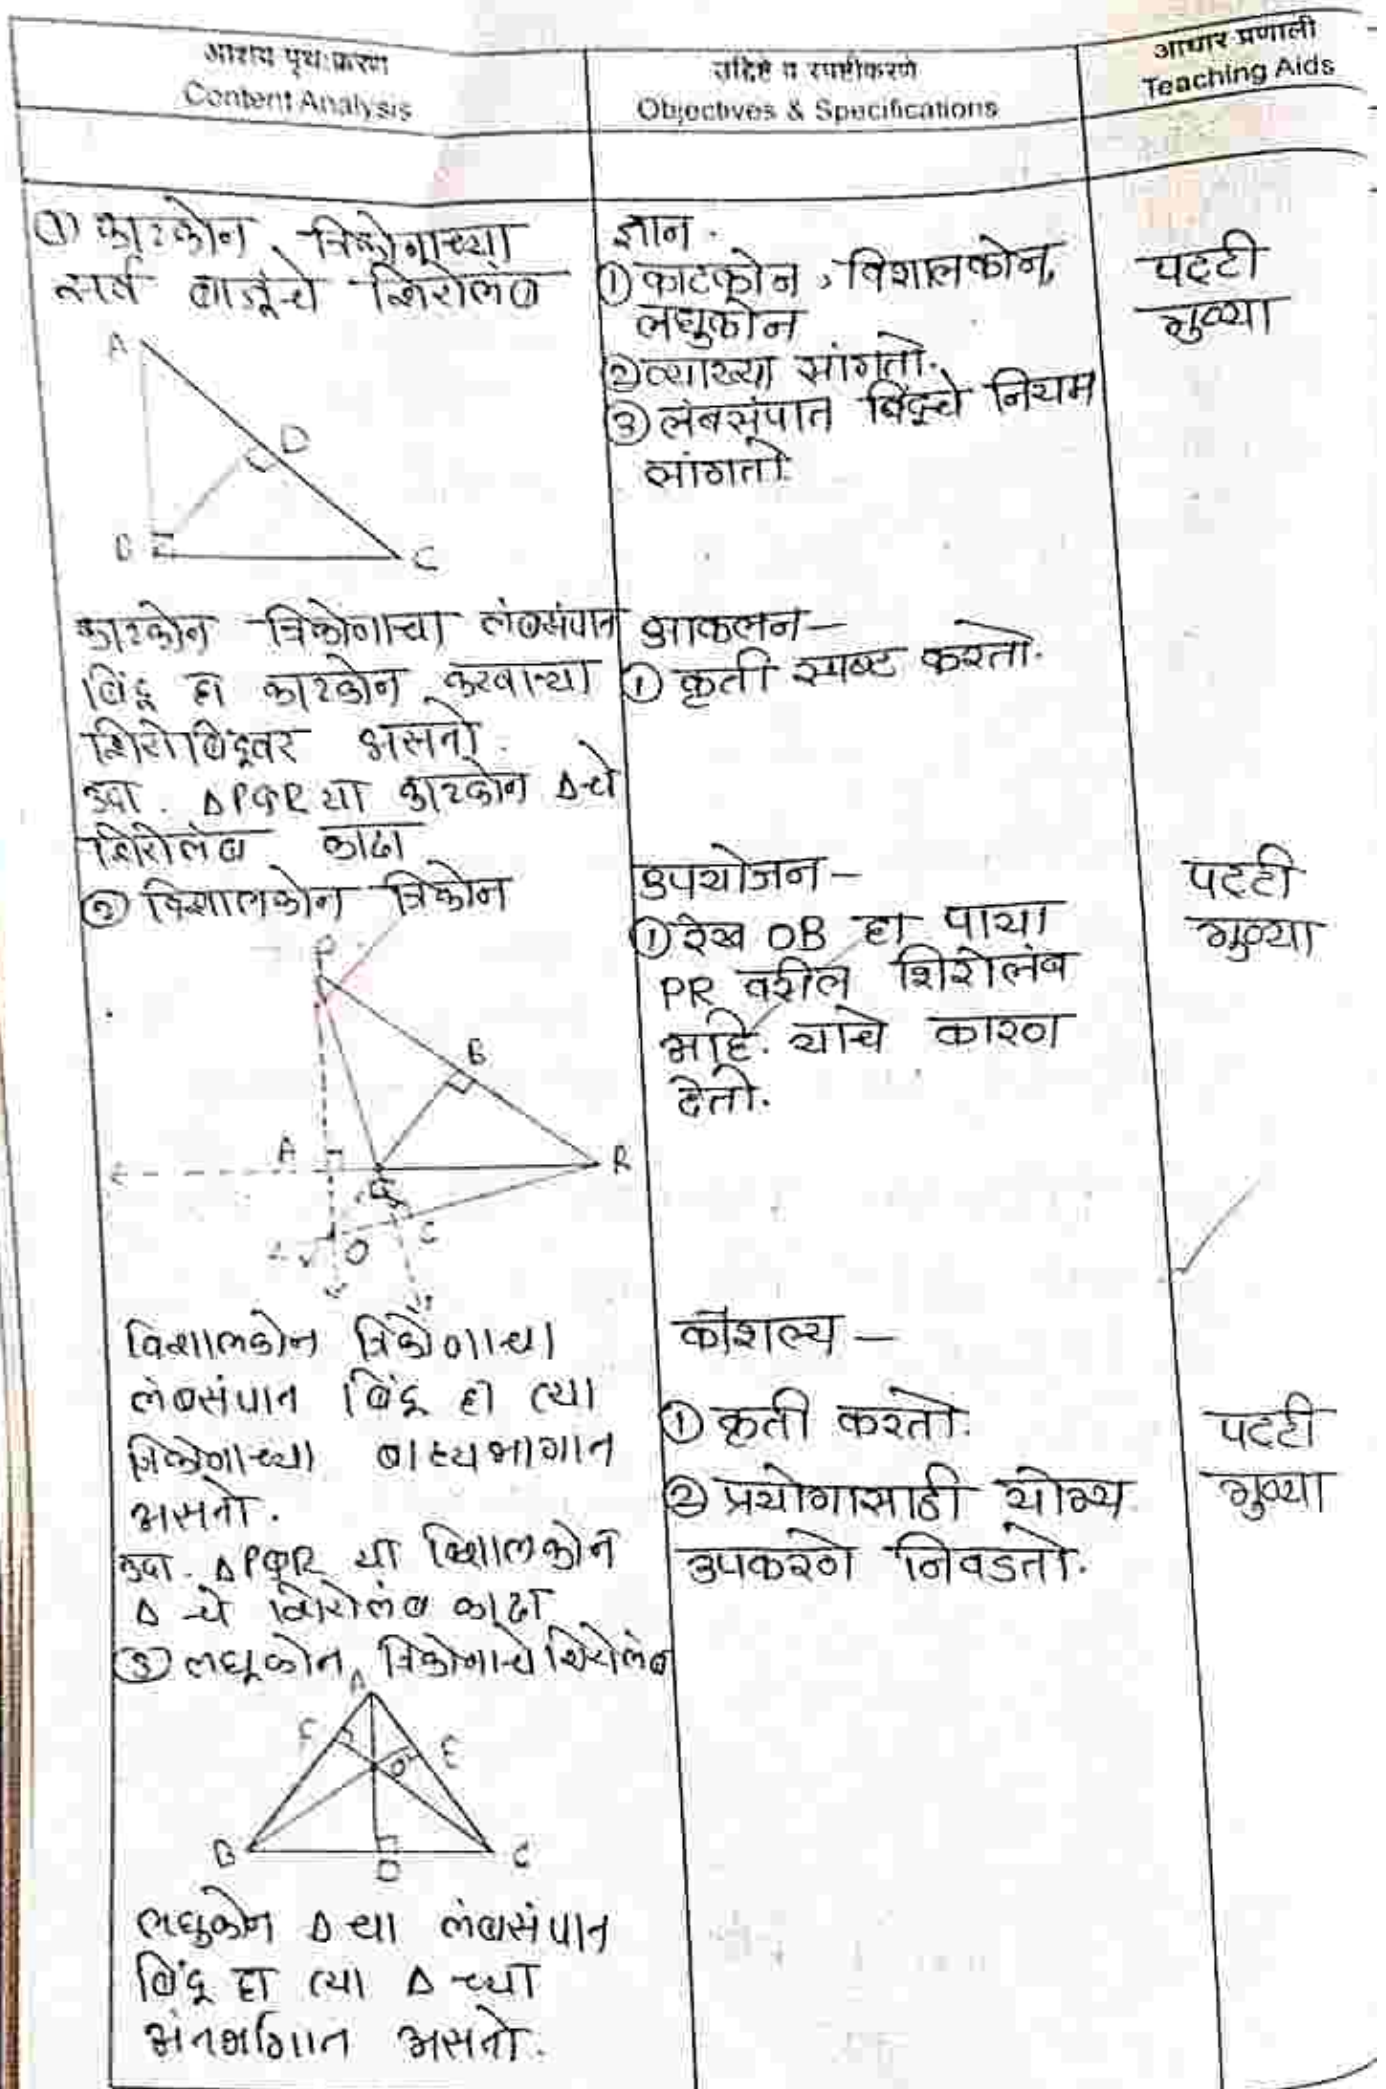 आशय पृथःकरण
Content Analysis
उद्दिष्टे व स्पष्टीकरणे
Objectives & Specifications
आधार प्रणाली
Teaching Aids
① काटकोन त्रिकोणाच्या
सर्व बाजूंचे शिरोलंब
A
D
B
C
काटकोन त्रिकोणाचा लंबसंपात
बिंदू हा काटकोन करणाऱ्या
शिरोबिंदूवर असतो.
उदा. ΔPQR या काटकोन Δचे
शिरोलंब काढा
② विशालकोन त्रिकोन
P
B
A
R
Q
O
C
विशालकोन त्रिकोणाचा
लंबसंपात बिंदू हा त्या
त्रिकोणाच्या बाह्यभागात
असतो.
उदा. ΔPQR या विशालकोन
Δ चे शिरोलंब काढा
③ लघूकोन त्रिकोणाचे शिरोलंब
A
F
E
O
B
D
C
लघुकोन Δ चा लंबसंपात
बिंदू हा त्या Δ च्या
अंतर्भागात असतो.
ज्ञान.
① काटकोन, विशालकोन,
लघुकोन
② व्याख्या सांगतो.
③ लंबसंपात बिंदूचे नियम
सांगतो.
आकलन—
① कृती स्पष्ट करतो.
उपयोजन—
① रेख OB हा पाया
PR वरील शिरोलंब
आहे. याचे कारण
देतो.
कौशल्य —
① कृती करतो.
② प्रयोगासाठी योग्य
उपकरणे निवडतो.
पट्टी
गुण्या
पट्टी
गुण्या
पट्टी
गुण्या